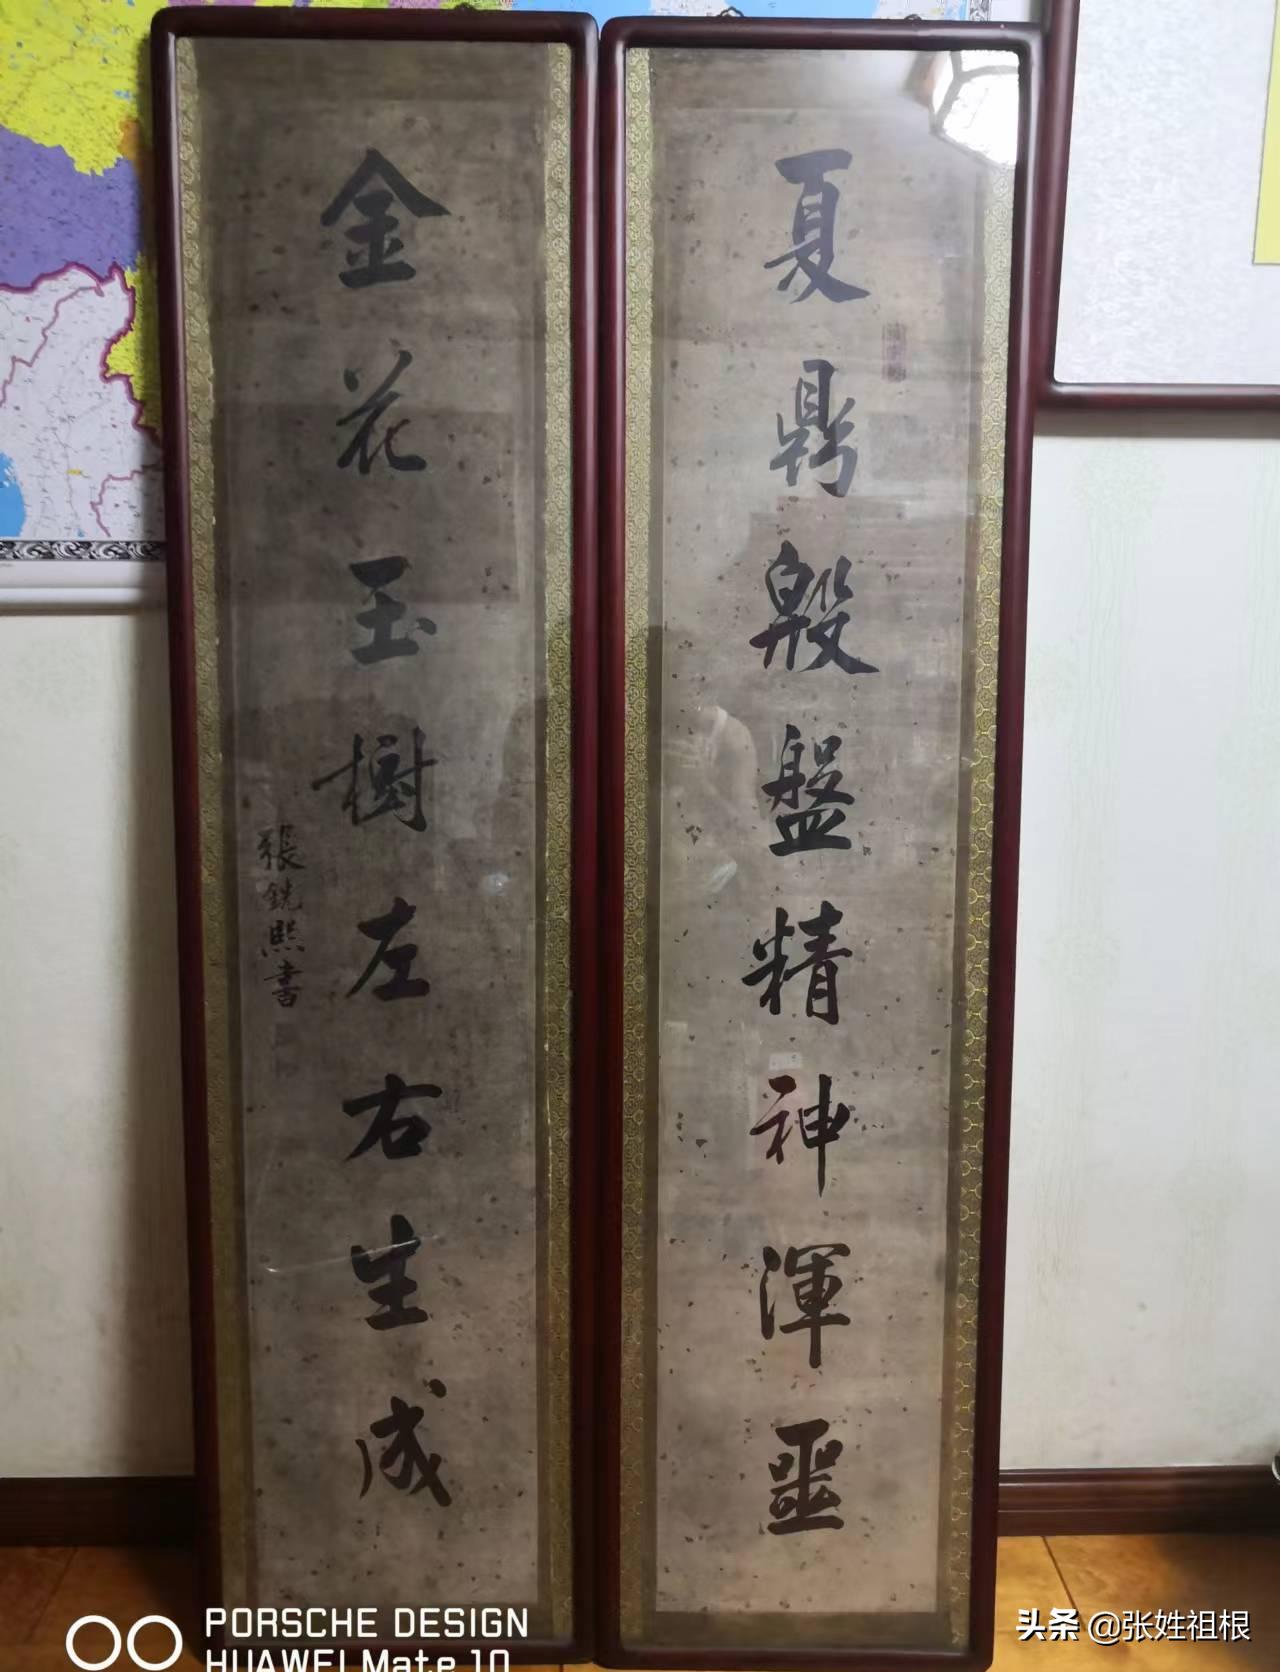 夏鼎殷盤精神渾噩
金花玉樹左右生成
張銑熙書
PORSCHE DESIGN
HUAWEI Mate 10
头条 @张姓祖根